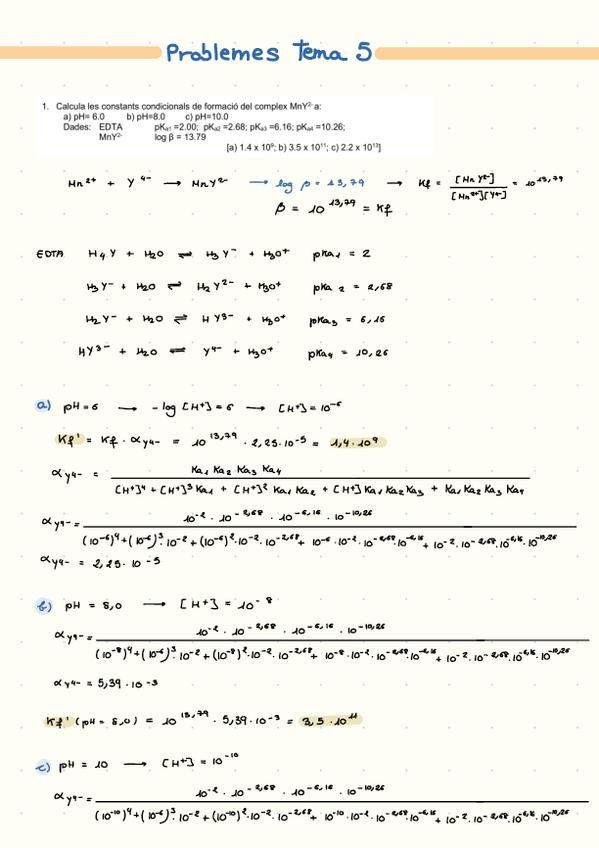 Problemes Tema 5
1. Calcula les constants condicionals de formació del complex MnY²⁻ a:
a) pH= 6.0 b) pH=8.0 c) pH=10.0
Dades: EDTA pKa1 =2.00; pKa2 =2.68; pKa3 =6.16; pKa4 =10.26;
MnY²⁻ log β = 13.79
[a) 1.4 x 10⁹; b) 3.5 x 10¹¹; c) 2.2 x 10¹³]
Mn²⁺ + Y⁴⁻ → MnY²⁻ → log β = 13,79 → Kf = [MnY²⁻] / [Mn²⁺][Y⁴⁻] = 10^13,79
β = 10^13,79 = Kf
EDTA H4Y + H2O ⇌ H3Y⁻ + H3O⁺ pKa1 = 2
H3Y⁻ + H2O ⇌ H2Y²⁻ + H3O⁺ pKa2 = 2,68
H2Y⁻ + H2O ⇌ HY³⁻ + H3O⁺ pKa3 = 6,16
HY³⁻ + H2O ⇌ Y⁴⁻ + H3O⁺ pKa4 = 10,26
a) pH = 6 → -log [H⁺] = 6 → [H⁺] = 10⁻⁶
Kf' = Kf · αY4- = 10^13,79 · 2,25·10⁻⁵ = 1,4·10⁹
αY4- = Ka1 Ka2 Ka3 Ka4
[H⁺]⁴ + [H⁺]³ Ka1 + [H⁺]² Ka1 Ka2 + [H⁺] Ka1 Ka2 Ka3 + Ka1 Ka2 Ka3 Ka4
αY4- = 10⁻² · 10^-2,68 · 10^-6,16 · 10^-10,26
(10⁻⁶)⁴ + (10⁻⁶)³ · 10⁻² + (10⁻⁶)² · 10⁻² · 10^-2,68 + 10⁻⁶ · 10⁻² · 10^-2,68 · 10^-6,16 + 10⁻² · 10^-2,68 · 10^-6,16 · 10^-10,26
αY4- = 2,25 · 10⁻⁵
b) pH = 8,0 → [H⁺] = 10⁻⁸
αY4- = 10⁻² · 10^-2,68 · 10^-6,16 · 10^-10,26
(10⁻⁸)⁴ + (10⁻⁶)³ · 10⁻² + (10⁻⁸)² · 10⁻² · 10^-2,68 + 10⁻⁸ · 10⁻² · 10^-2,68 · 10^-6,16 + 10⁻² · 10^-2,68 · 10^-6,16 · 10^-10,26
αY4- = 5,39 · 10⁻³
Kf' (pH = 8,0) = 10^13,79 · 5,39·10⁻³ = 3,5·10¹¹
c) pH = 10 → [H⁺] = 10⁻¹⁰
αY4- = 10⁻² · 10^-2,68 · 10^-6,16 · 10^-10,26
(10⁻¹⁰)⁴ + (10⁻⁶)³ · 10⁻² + (10⁻¹⁰)² · 10⁻² · 10^-2,68 + 10⁻¹⁰ · 10⁻² · 10^-2,68 · 10^-6,16 + 10⁻² · 10^-2,68 · 10^-6,16 · 10^-10,26